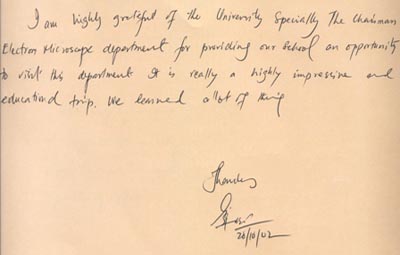 I am highly grateful of the University Specially The Chairman
Electron Microscope department for providing our school an opportunity
to visit this department It is really a highly impressive and
educational trip. We learned allot of thing
Thanks
26/10/02